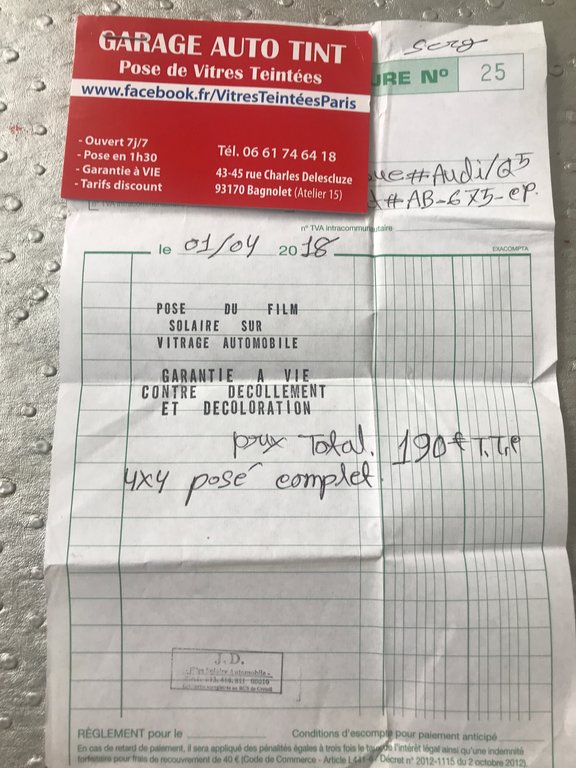 GARAGE AUTO TINT
Pose de Vitres Teintées
www.facebook.fr/VitresTeintéesParis
- Ouvert 7j/7
- Pose en 1h30
- Garantie à VIE
- Tarifs discount
Tél. 06 61 74 64 18
43-45 rue Charles Delescluze
93170 Bagnolet (Atelier 15)
URE Nº 25
ue#Audi/Q5
#AB-675-ep.
n° TVA intracommunautaire
le 01/04 2018
EXACOMPTA
POSE DU FILM
SOLAIRE SUR
VITRAGE AUTOMOBILE
GARANTIE A VIE
CONTRE DECOLLEMENT
ET DECOLORATION
prix Total. 190€ T.T.C
4X4 posé complet.
J.D.
RÈGLEMENT pour le
Conditions d'escompte pour paiement anticipé
En cas de retard de paiement, il sera appliqué des pénalités égales à trois fois le taux de l'intérêt légal ainsi qu'une indemnité
forfaitaire pour frais de recouvrement de 40 € (Code de Commerce - Article L441-6 / Décret n° 2012-1115 du 2 octobre 2012).